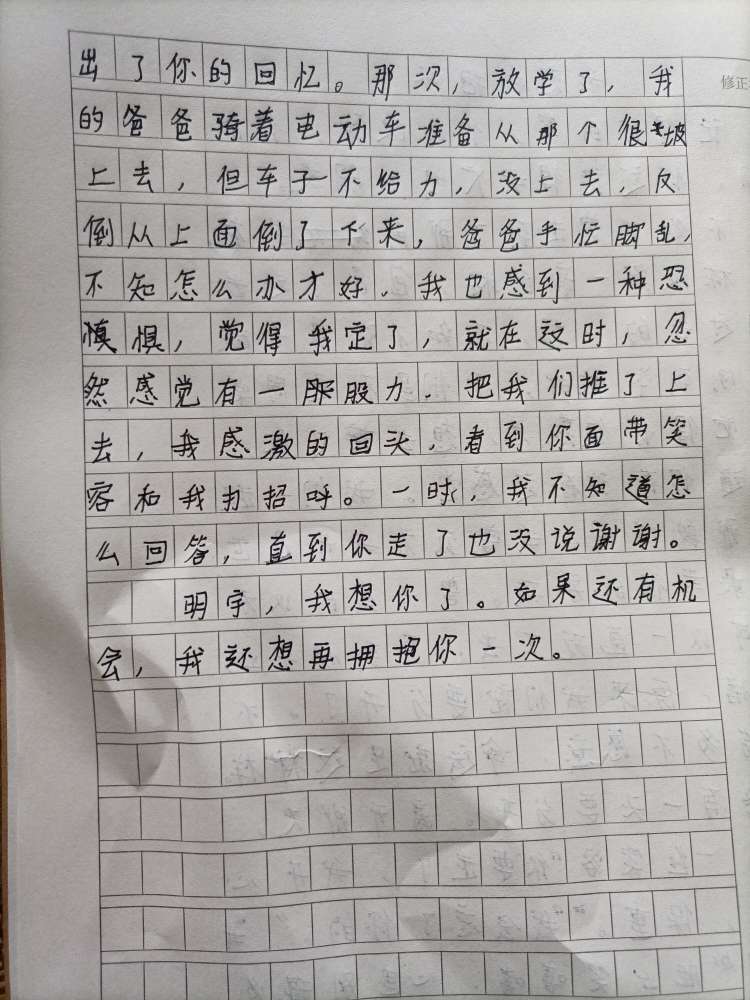 修正
出了你的回忆。那次，放学了，我
的爸爸骑着电动车准备从那个很长坡
上去，但车子不给力，没上去，反
倒从上面倒了下来，爸爸手忙脚乱，
不知怎么办才好．我也感到一种恐
慎惧，觉得我定了，就在这时，忽
然感觉有一股股力．把我们推了上
去，我感激的回头，看到你面带笑
容和我打招呼。一时，我不知道怎
么回答，直到你走了也没说谢谢。
明宇，我想你了。如果还有机
会，我还想再拥抱你一次。